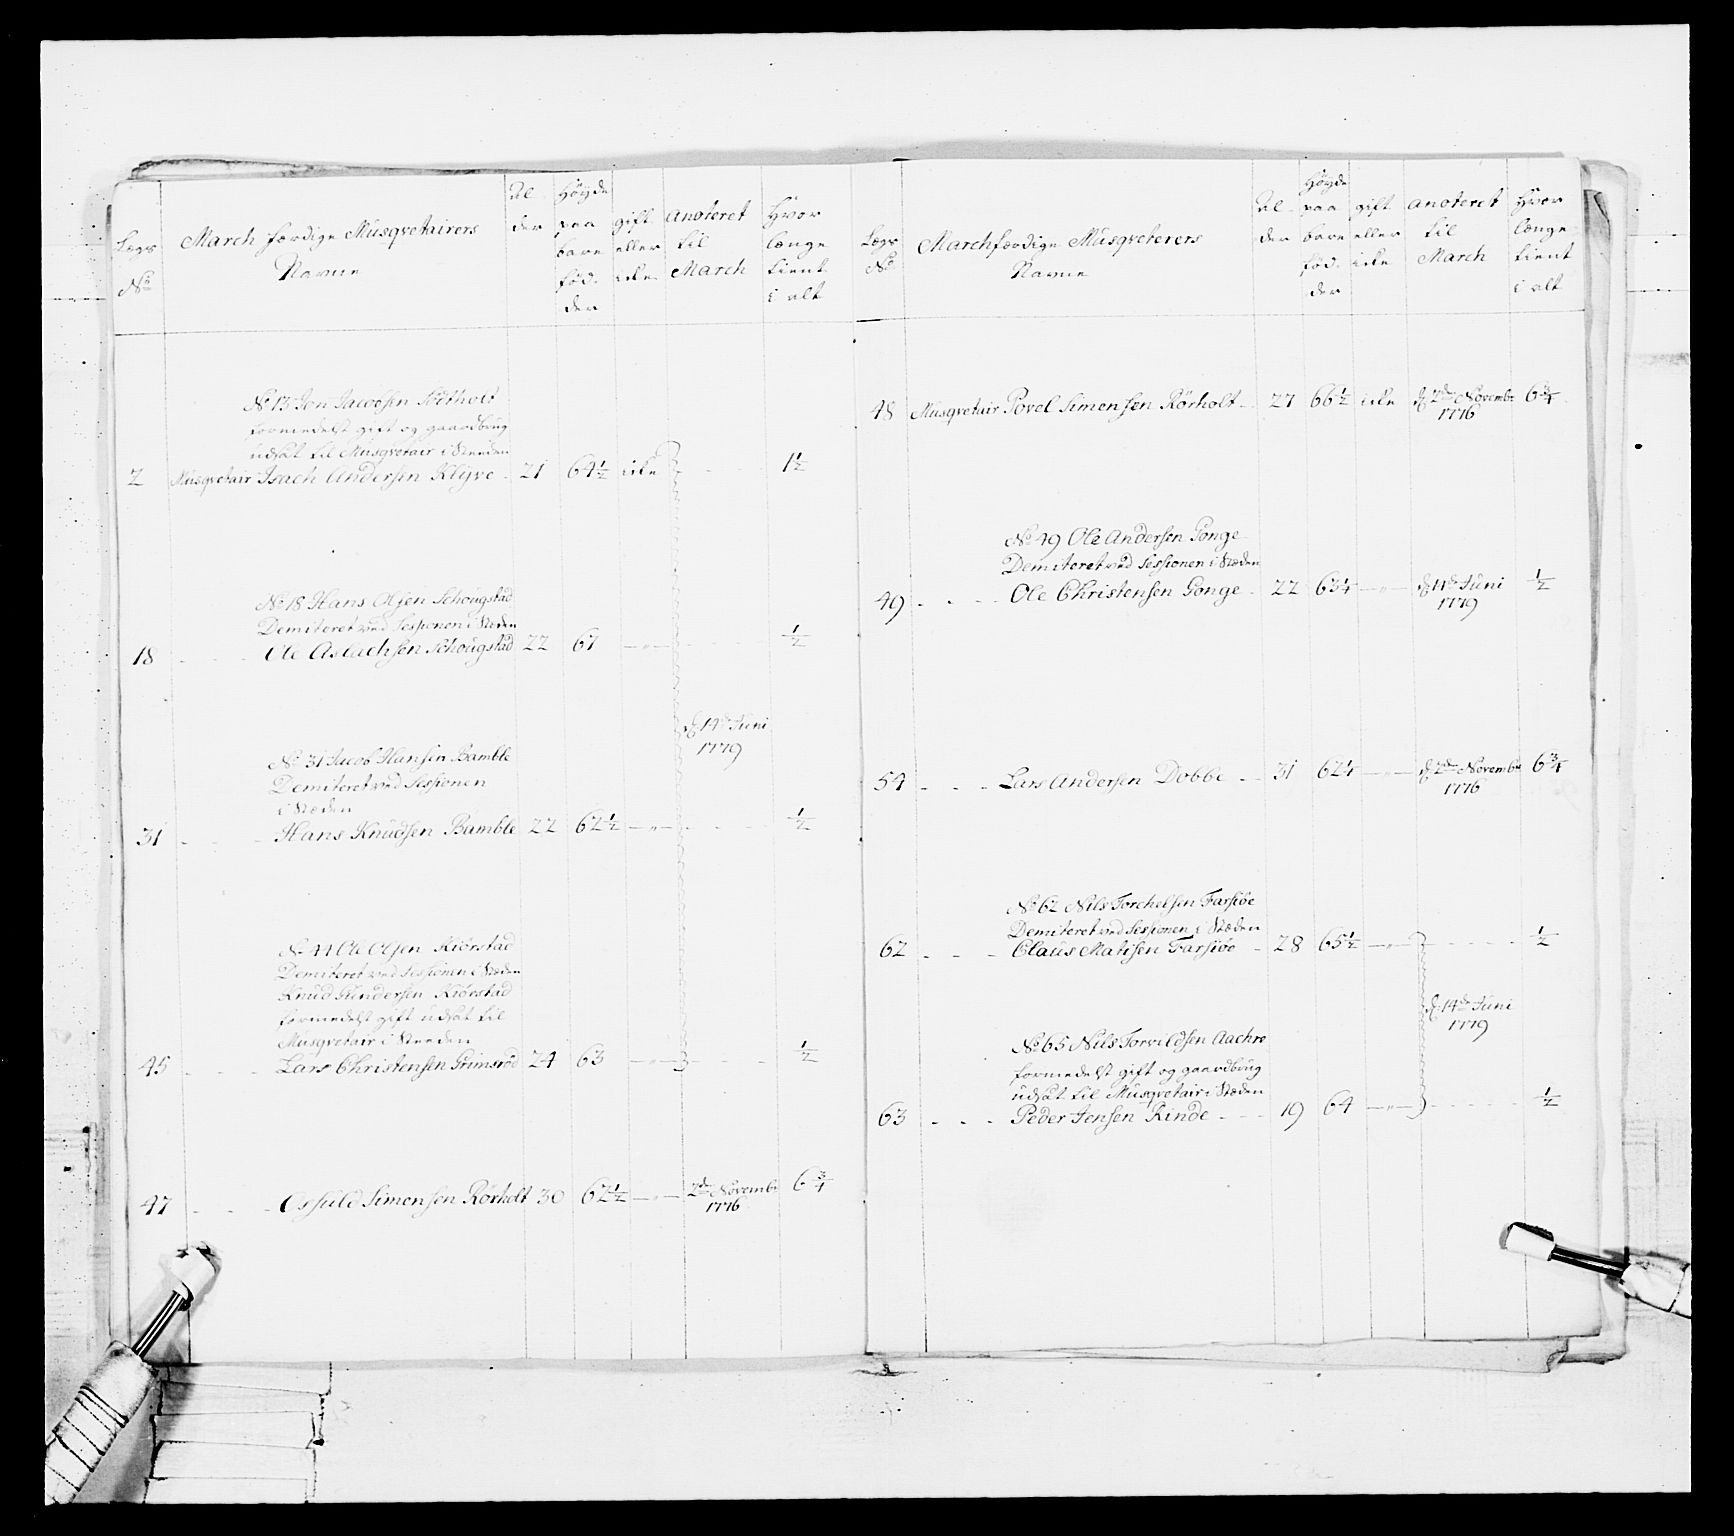 Lægs
No
March færdige Musqvetairers
Navne
Al-
der
Høyde
paa
bare
fød-
der
gift
eller
icke
anoteret
til
March
Hvor
længe
tient
i alt
No 13 Jon Jacobsen
formedelst gift og gaardbrug
udsat til Musqvetair i Steden
2 Musqvetair Isach Andersen Klyve - 21 64½ icke 1½
No 18 Hans Olsen Schougstad
Demiteret ved Sessionen i Stæden
18 - - - Ole Aslachsen Schougstad 22 61 —"— - - - ½
d 14de Juni
1779
No 31 Jacob Hansen Bamble
Demiteret ved Sessionen
i Stæden
31 - - - Hans Knudsen Bamble 22 62½ —"— - - - ½
No 44 Ole Olsen Kiørstad
Demiteret ved Sessionen i Stæden
Knud Gundersen Kiørstad
formedelst gift udsat til
Musqvetair i Steeden
45 - - - Lars Christensen Grimsrød 24 63 —"— - - - ½
47 - - - Ossuld Simensen Rørholt 30 62½ —"— 2de Novembr 6¾
1776
Lægs
No
Marchfærdige Musqveterers
Navne
Al-
der
Høyde
paa
bare
fød-
der
gift
eller
icke
anoteret
til
March
Hvor
længe
tient
i alt
48 Musqvetair Povel Simensen Rørholt - 27 66½ icke d 2de Novembr 6¾
1776
No 49 Ole Andersen Gonge
Demiteret ved Sessionen i Stæden
49 - - - Ole Christensen Gonge - 22 63¼ —"— d 14de Juni ½
1779
54 - - - Lars Andersen Dobbe - - 31 62¼ —"— d 2de Novembr 6¾
1776
No 62 Nils Torchelsen Farsiøe
Demiteret ved Sessionen i Stæden
62 - - - Claus Matisen Farsiøe - 28 65½ —"— - - - ½
d 14de Juni
1779
No 65 Nils Torvildsen Aachre
formedelst gift og gaardbrug
udsat til Musqvetair i Stæden
63 - - - Peder Jensen Rinde - - - 19 64 —"— - - - ½